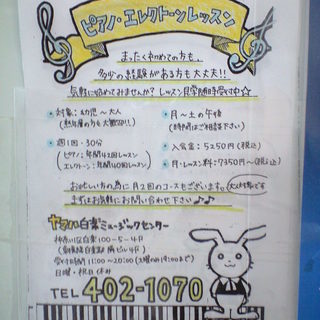 ピアノ・エレクトーンレッスン
まったく初めての方も、
多少の経験がある方も大丈夫!!
気軽に始めてみませんか? レッスン見学随時受付中☆
・対象:4カ月〜大人
(熟年層の方も大歓迎!!)
・週1回・30分
(ピアノ:年間42回レッスン
エレクトーン:年間40回レッスン)
・月〜土の午後
(時間帯はご相談下さい)
・入会金:5250円(税込)
・月・レッスン料:7350円〜(税込)
お忙しい方の為に月2回のコースもございます。
まずはお気軽にお問い合わせ下さい♪♪
ヤマハ白楽ミュージックセンター
神奈川区白楽100-5-4F
受付時間 11:00〜20:00(土曜のみ19:00まで)
日曜・祝日休み
TEL 402-1070